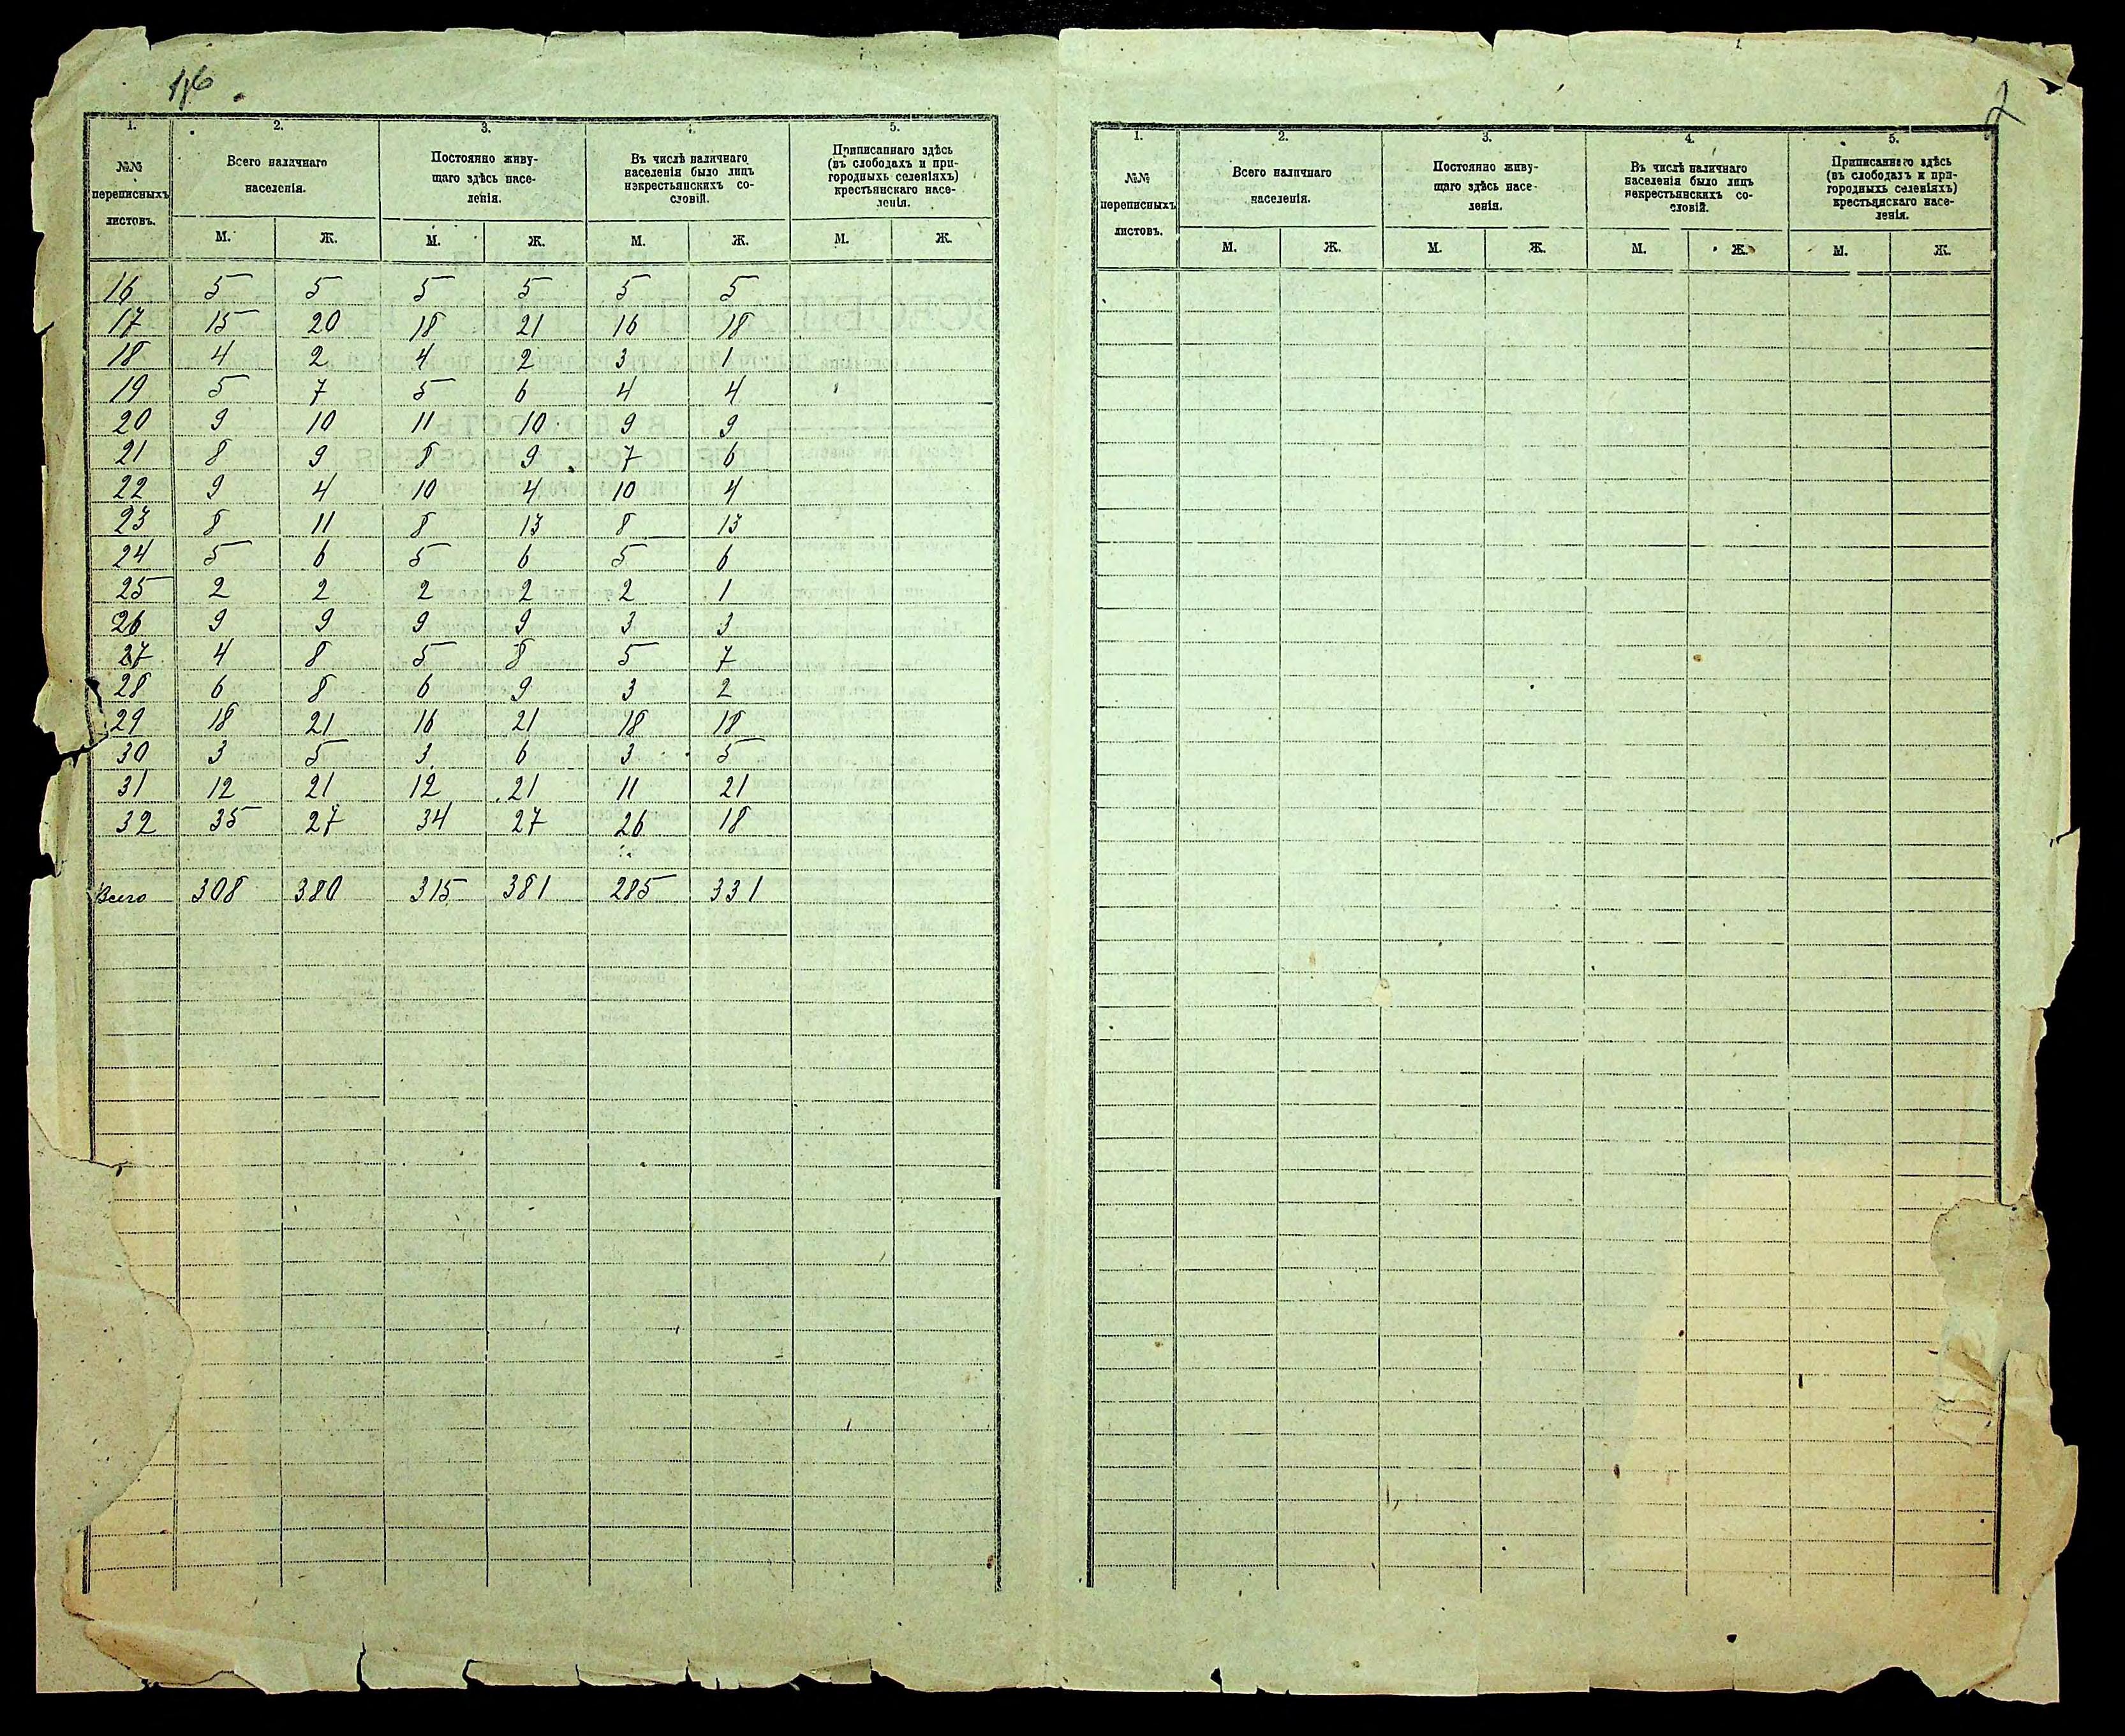 1. 2. 3. 4. 5.
№№ переписныхъ листовъ. Всего наличнаго населенія. Постоянно живущаго здѣсь населенія. Въ числѣ наличнаго населенія было лицъ некрестьянскихъ сословій. Приписаннаго здѣсь (въ слободахъ и пригородныхъ селеніяхъ) крестьянскаго населенія.
М. Ж. М. Ж. М. Ж. М. Ж.
16 5 5 5 5 5 5
17 15 20 18 21 16 18
18 4 2 4 2 3 1
19 5 7 5 6 4 4
20 9 10 11 10 9 9
21 8 9 8 9 7 6
22 9 4 10 4 10 4
23 8 11 8 13 8 13
24 5 6 5 6 5 6
25 2 2 2 2 2 1
26 9 9 9 9 3 3
27 4 8 5 8 5 7
28 6 8 6 9 3 2
29 18 21 16 21 18 18
30 3 5 3 6 3 5
31 12 21 12 21 11 21
32 35 27 34 27 26 18
Всего 308 380 315 381 285 331
2
1. 2. 3. 4. 5.
№№ переписныхъ листовъ. Всего наличнаго населенія. Постоянно живущаго здѣсь населенія. Въ числѣ наличнаго населенія было лицъ некрестьянскихъ сословій. Приписаннаго здѣсь (въ слободахъ и пригородныхъ селеніяхъ) крестьянскаго населенія.
М. Ж. М. Ж. М. Ж. М. Ж.